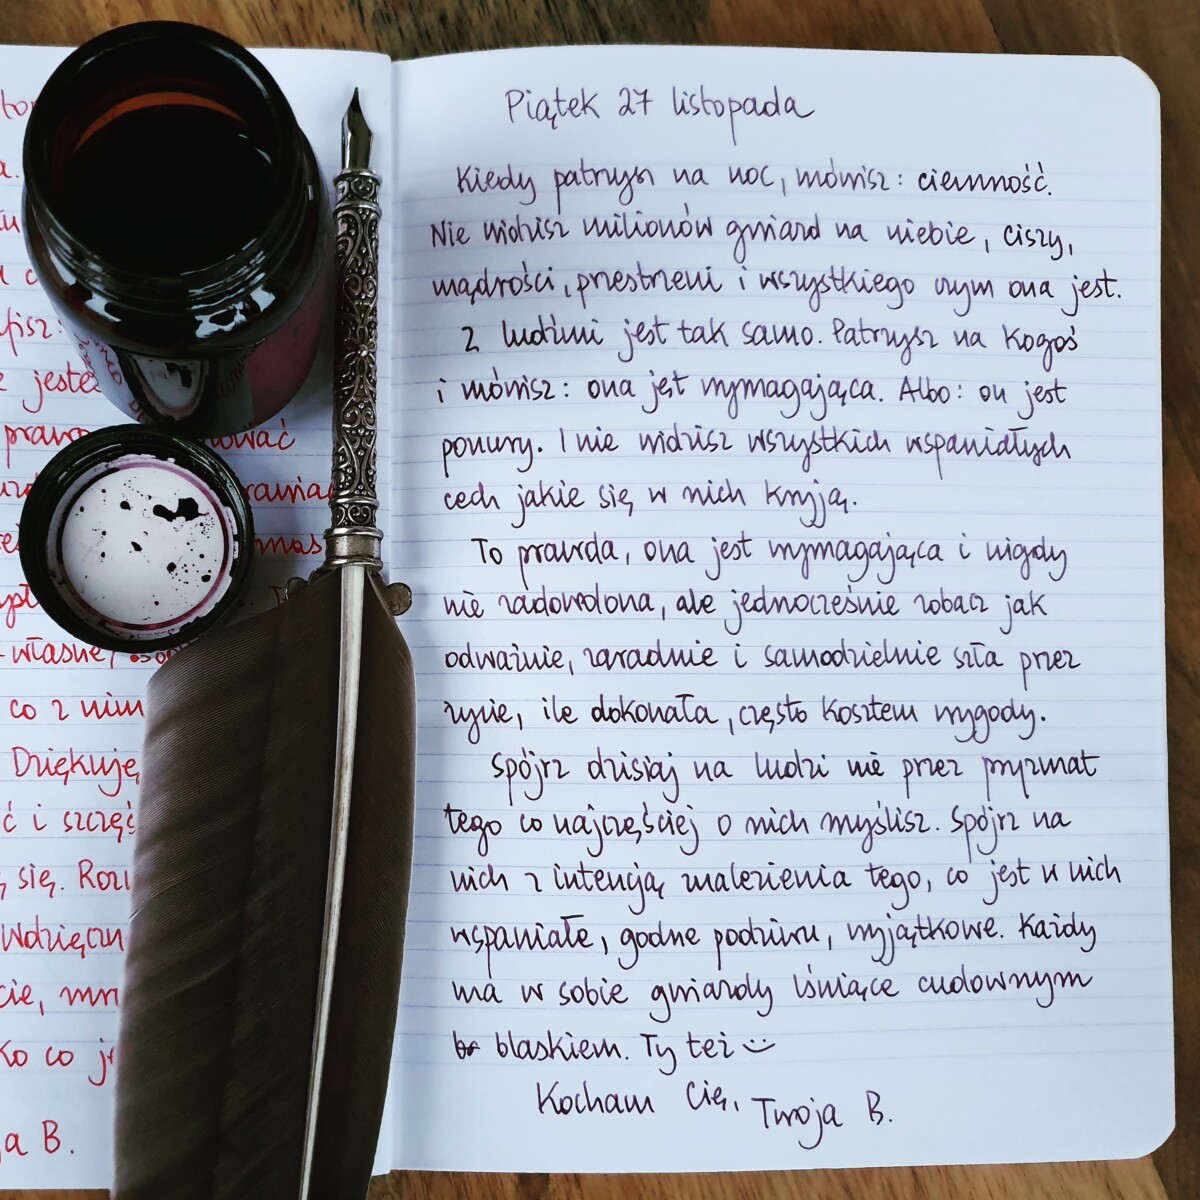 Piątek 27 listopada
Kiedy patrzysz na noc, mówisz: ciemność.
Nie widzisz milionów gwiazd na niebie, ciszy,
mądrości, przestrzeni i wszystkiego czym ona jest.
Z ludźmi jest tak samo. Patrzysz na kogoś
i mówisz: ona jest wymagająca. Albo: on jest
ponury. I nie widzisz wszystkich wspaniałych
cech jakie się w nich kryją.
To prawda, ona jest wymagająca i nigdy
nie zadowolona, ale jednocześnie zobacz jak
odważnie, zaradnie i samodzielnie szła przez
życie, ile dokonała, często kosztem wygody.
Spójrz dzisiaj na ludzi nie przez pryzmat
tego co najczęściej o nich myślisz. Spójrz na
nich z intencją znalezienia tego, co jest w nich
wspaniałe, godne podziwu, wyjątkowe. Każdy
ma w sobie gwiazdy lśniące cudownym
blaskiem. Ty też :)
Kocham Cię, Twoja B.
jesteś
własne,
co z nim
Dziękuję
i
się.
co
B.